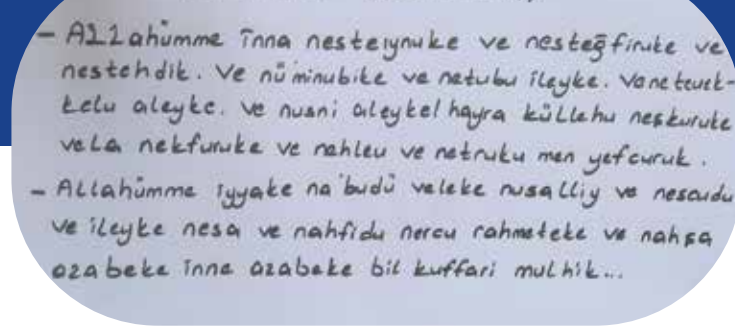 - Allahümme inna nesteıynuke ve nesteğfiruke ve
nestehdik. Ve nü'minubike ve netubu ileyke. Vanetevek-
kelu aleyke. ve nusni aleykel hayra küllehu neşkuruke
vela nekfuruke ve nahleu ve netruku men yefcuruk.
- Allahümme iyyake na'budü veleke nusalliy ve nescudu
ve ileyke nesa ve nahfidu nercu rahmeteke ve nahşa
azabeke inne azabeke bil kuffari mulhik...